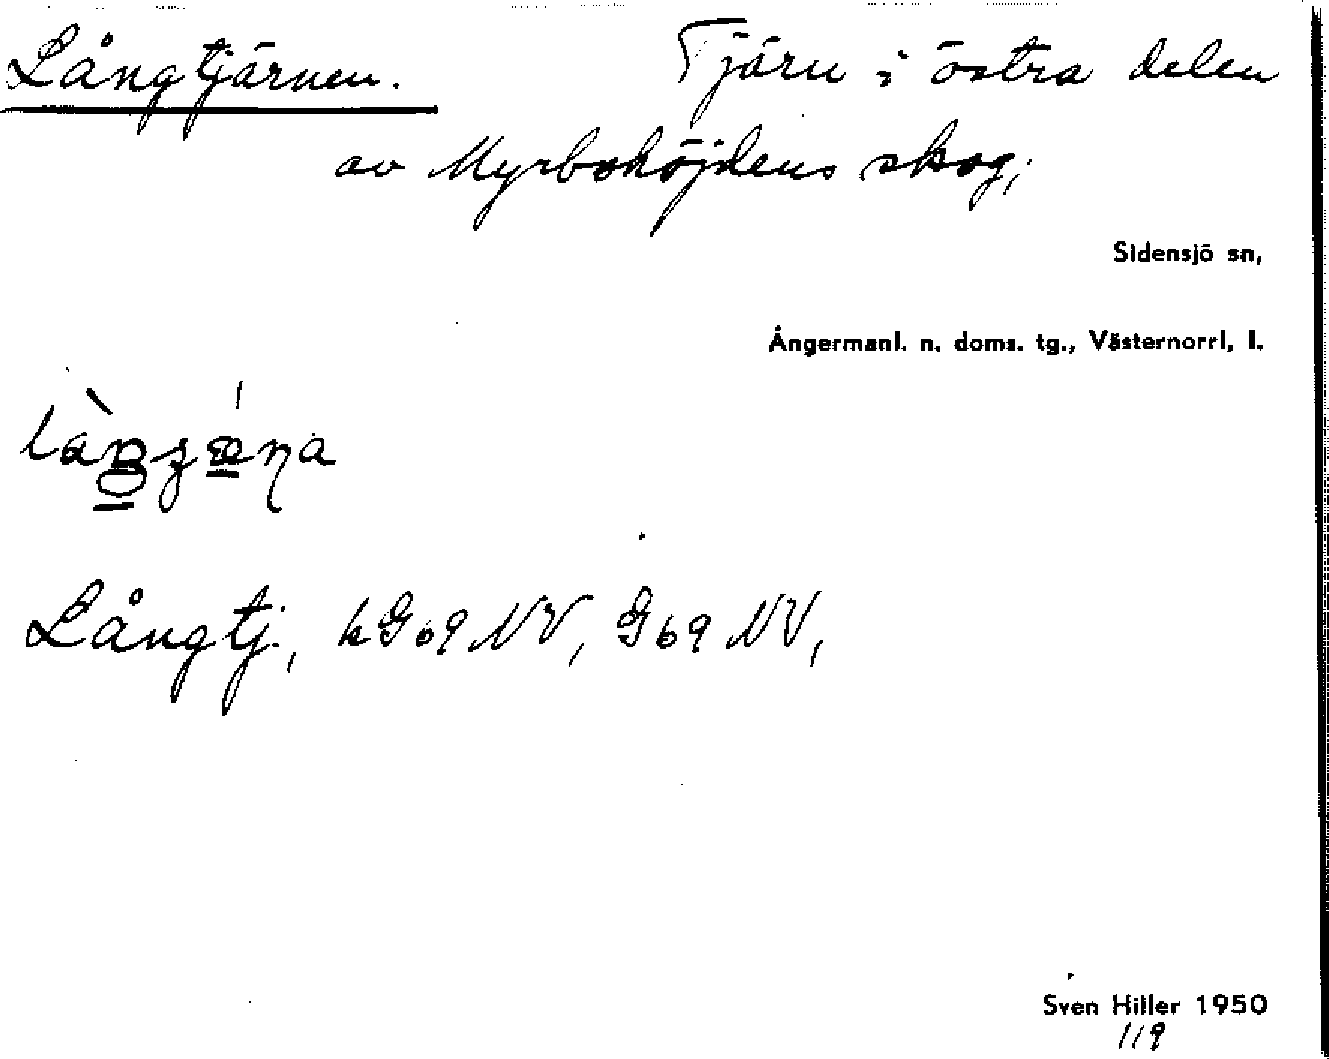 Långtjärnen. Tjärn i östra delen
av Myrbohöjdens skog;
Sidensjö sn,
Ångermanl. n. doms. tg., Västernorrl. l.
Långtj., kG69NV, G69NV,
Sven Hiller 1950
119